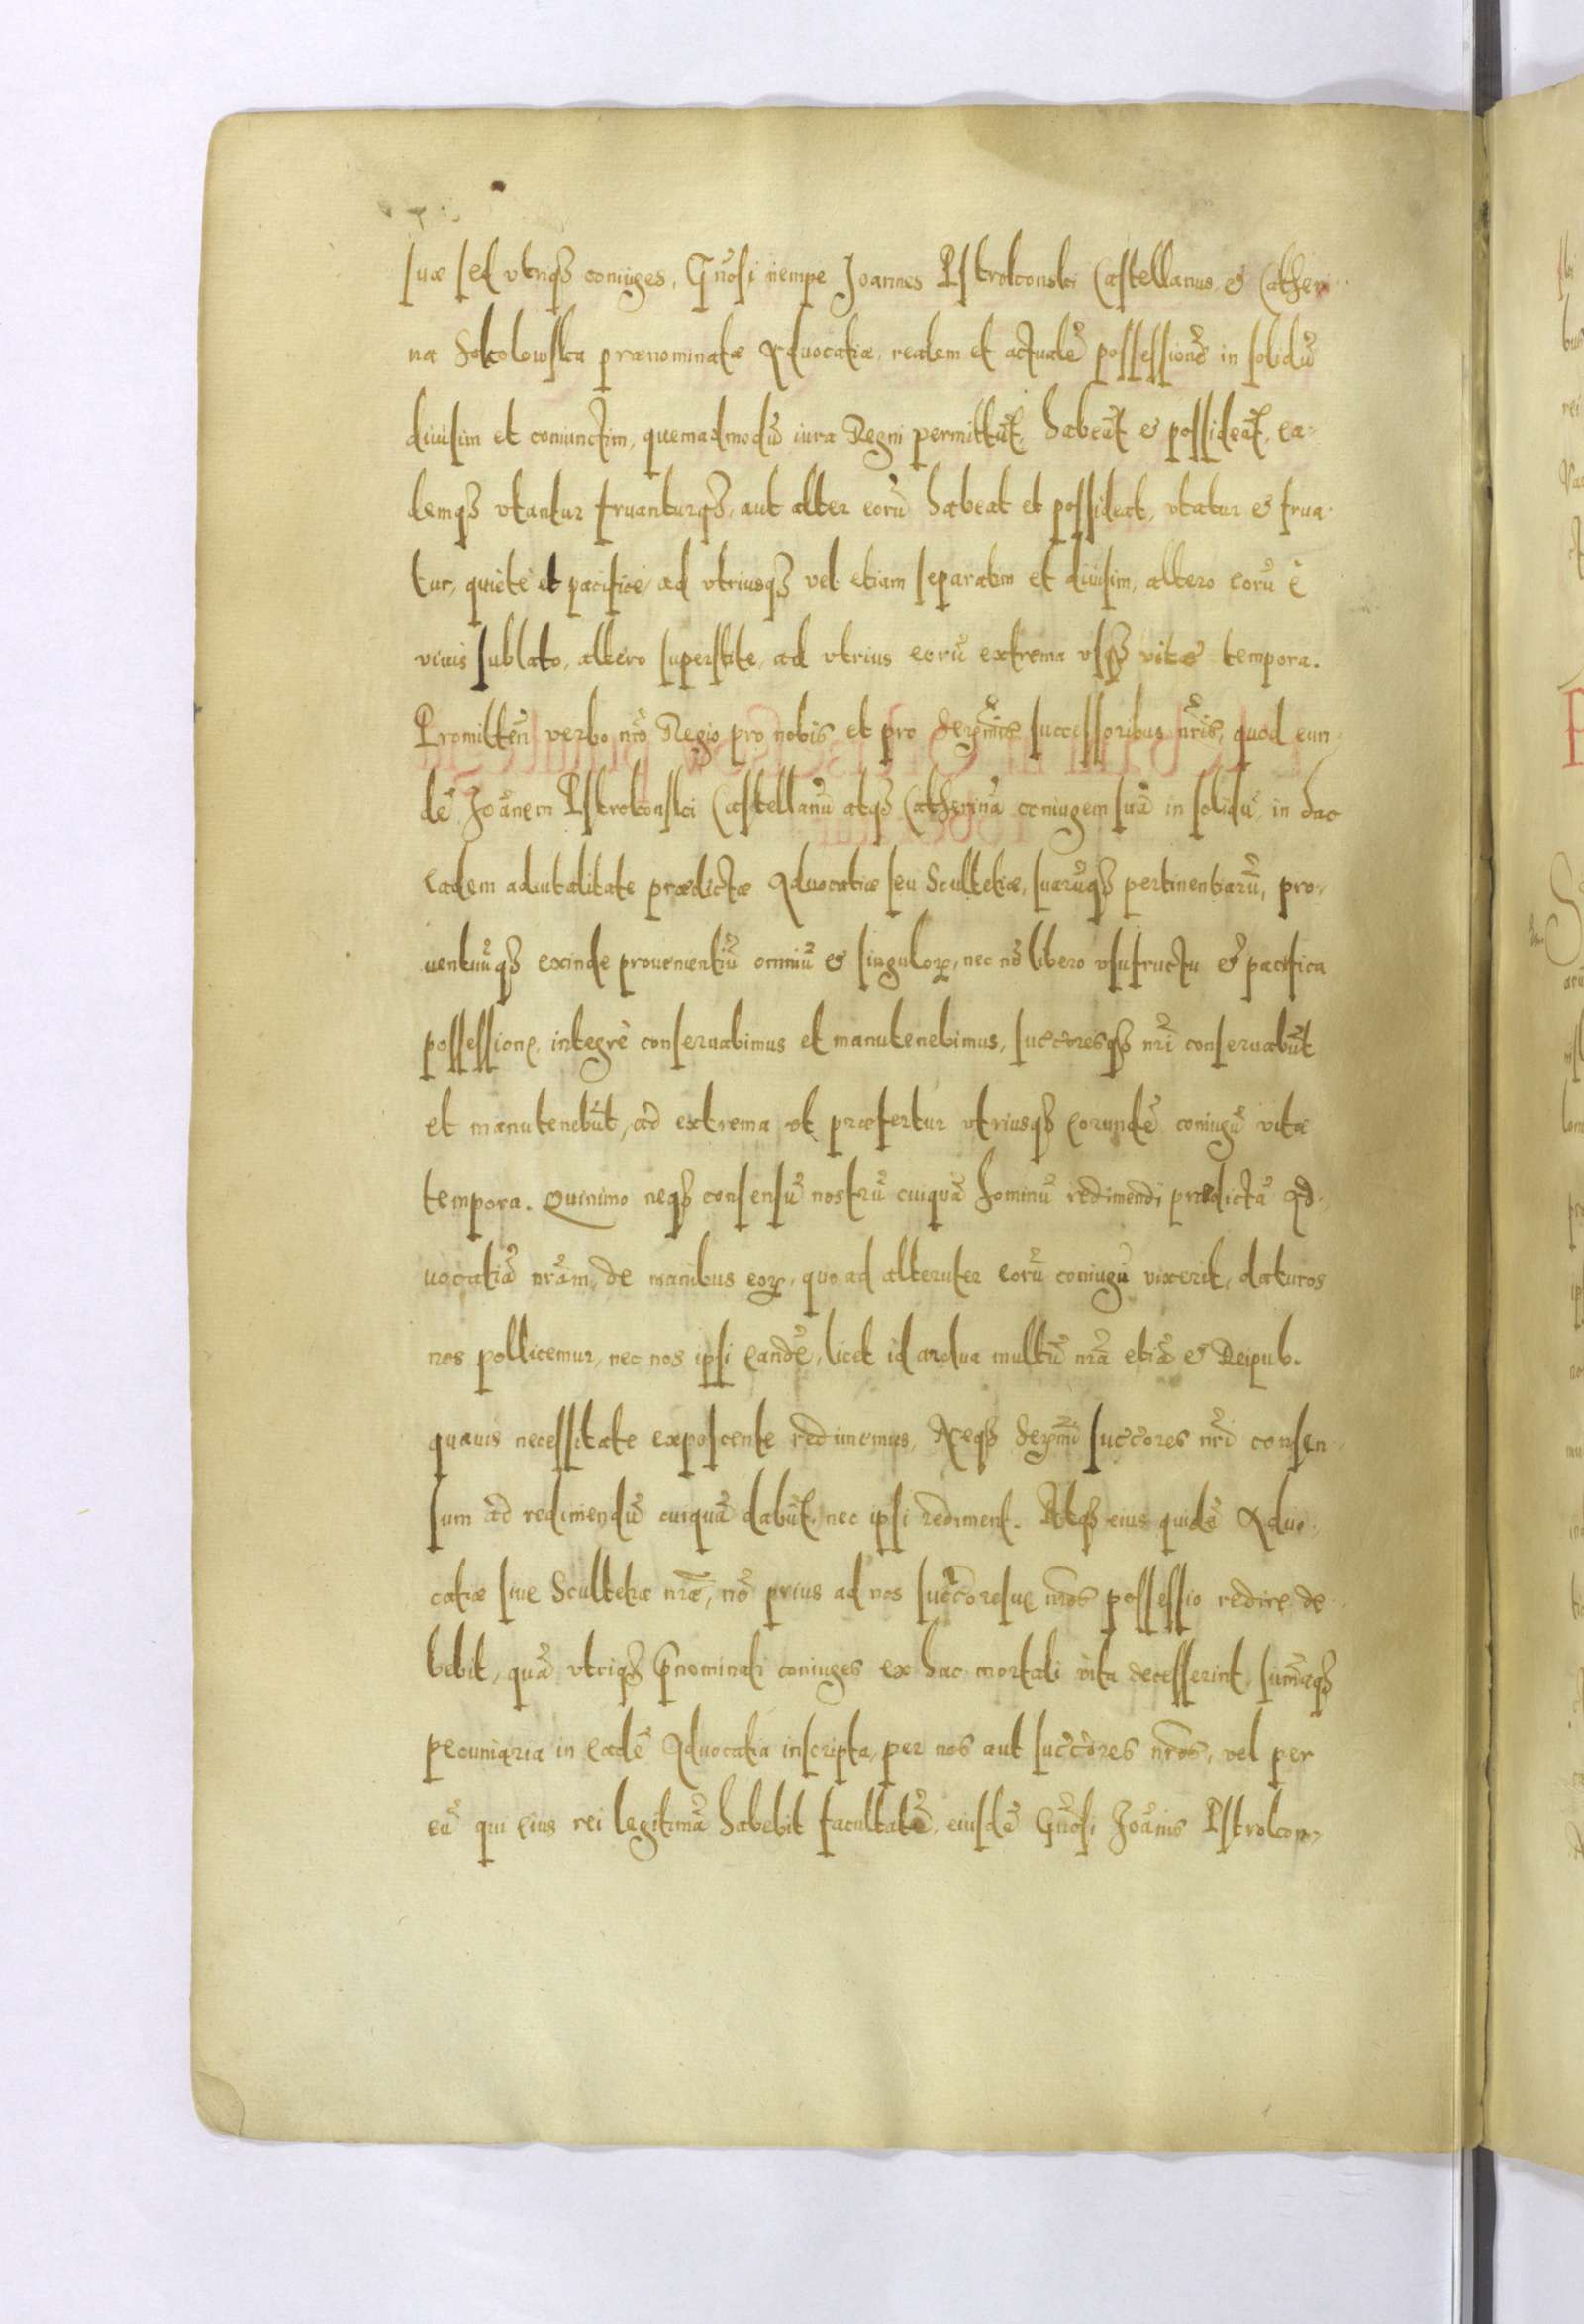 suæ sed vtriqꝫ coniuges, Gn̄osi nempe Joannes Pstrokonski Castellanus & Catheri-
na Sokolowska prænominatæ Aduocatiæ, realem et actualē possessionē in solidū
diuisim et coniunctim, quemadmodū iura Regni permittūt, habeāt & possideāt, ea-
demqꝫ vtantur fruanturqꝫ, aut alter eorū habeat et possideat, vtatur & frua-
tur, quiete et pacifice, ad vtriusqꝫ vel etiam separatim et diuisim, altero eorū è
viuis sublato, altero superstite, ad vtrius eorū extrema vsqꝫ vitæ tempora.
Promitteñ verbo nr̄o Regio pro nobis et pro Serm̄is successoribus nr̄is, quod eun-
dē Joānem Pstrokonski Castellanū atqꝫ Catherinā coniugem suā in solidū, in hac
eadem aduitalitate prædictæ Aduocatiæ seu Scultetiæ, suarūqꝫ pertinentiarū, pro-
uentuūqꝫ exinde prouenientiū omniū & singuloꝝ, nec nō libero vsufructu & pacifica
possessione, integrè conseruabimus et manutenebimus, succoresqꝫ nr̄i conseruabūt
et manutenebūt, ad extrema vt præfertur vtriusqꝫ eorundē coniugū vitæ
tempora. Quinimo neqꝫ consensū nostrū cuiquā hominū redimendi prædictā Ad-
uocatiā nr̄am, de manibus eoꝝ, quo ad alteruter eorū coniugū vixerit, daturos
nos pollicemur, nec nos ipsi eandē, licet id ardua multū nr̄a etiā & Reipub.
quauis necessitate exposcente redimemus, Neqꝫ Serm̄i succores nr̄i consen-
sum ad redimendū cuiquā dabūt, nec ipsi rediment. Atqꝫ eius quidē Aduo-
catiæ siue Scultetiæ nr̄æ, nō prius ad nos succoresue nr̄os possessio redire de-
bebit, quā vtriqꝫ p̄nominati coniuges ex hac mortali vita decesserint, sum̄aqꝫ
pecuniaria in eadē Aduocatia inscripta, per nos aut succores nr̄os, vel per
eū qui eius rei legitimā habebit facultatē, eiusdē Gn̄osi Joānis Pstrokon-